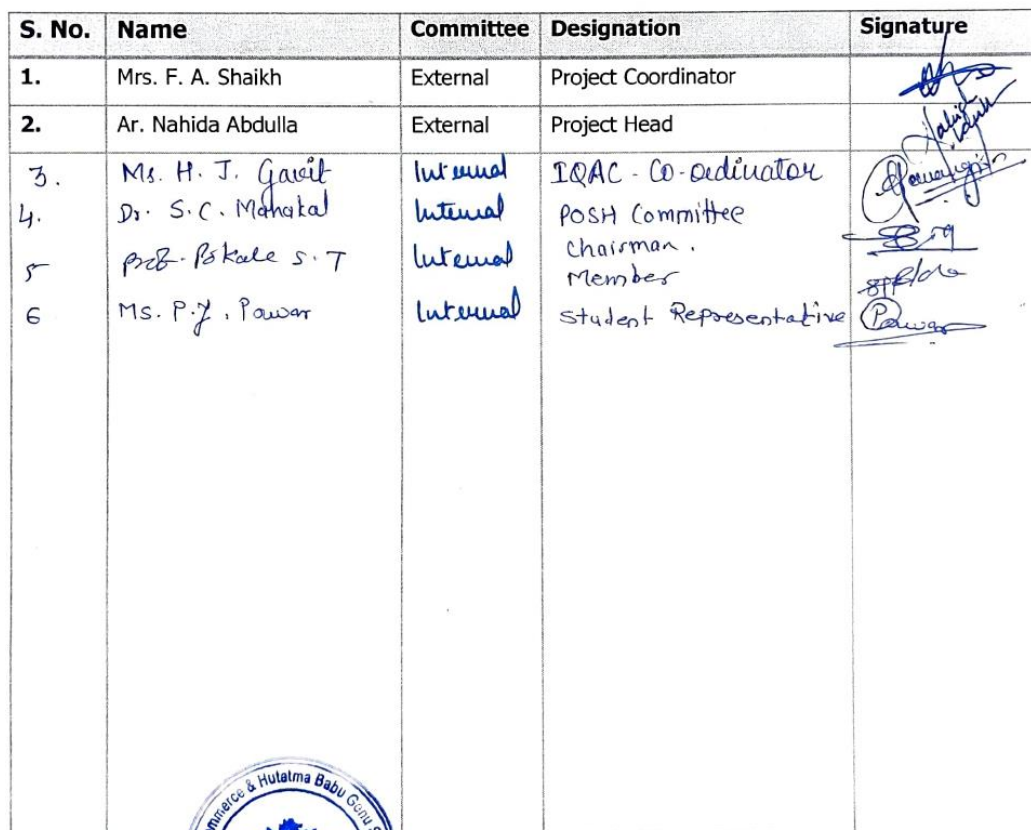 S. No. Name Committee Designation Signature
1. Mrs. F. A. Shaikh External Project Coordinator
2. Ar. Nahida Abdulla External Project Head
3. Ms. H. J. Gavit Internal IQAC - Co-ordinator
4. Dr. S. C. Mahakal Internal POSH Committee
Chairman.
5 Prof. Pokale S. T Internal Member
6 Ms. P. J. Pawar Internal Student Representative Pawar
mmerce & Hutatma Babu Genu